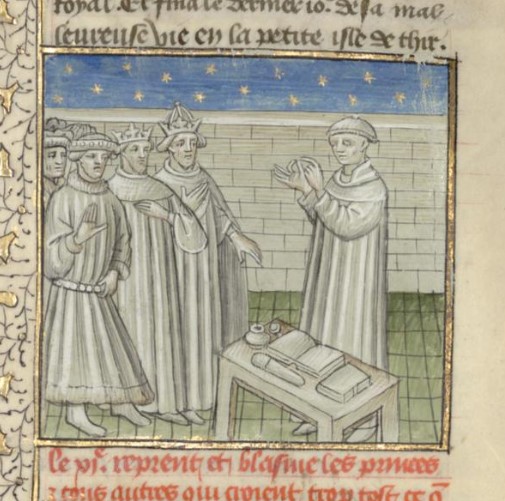 royal. Et fina le dernier io. de sa mal
leureuse vie en la petite isle de thir.
le ps. reprent et blasme les princes
z tous autres qui croient trop tost ce